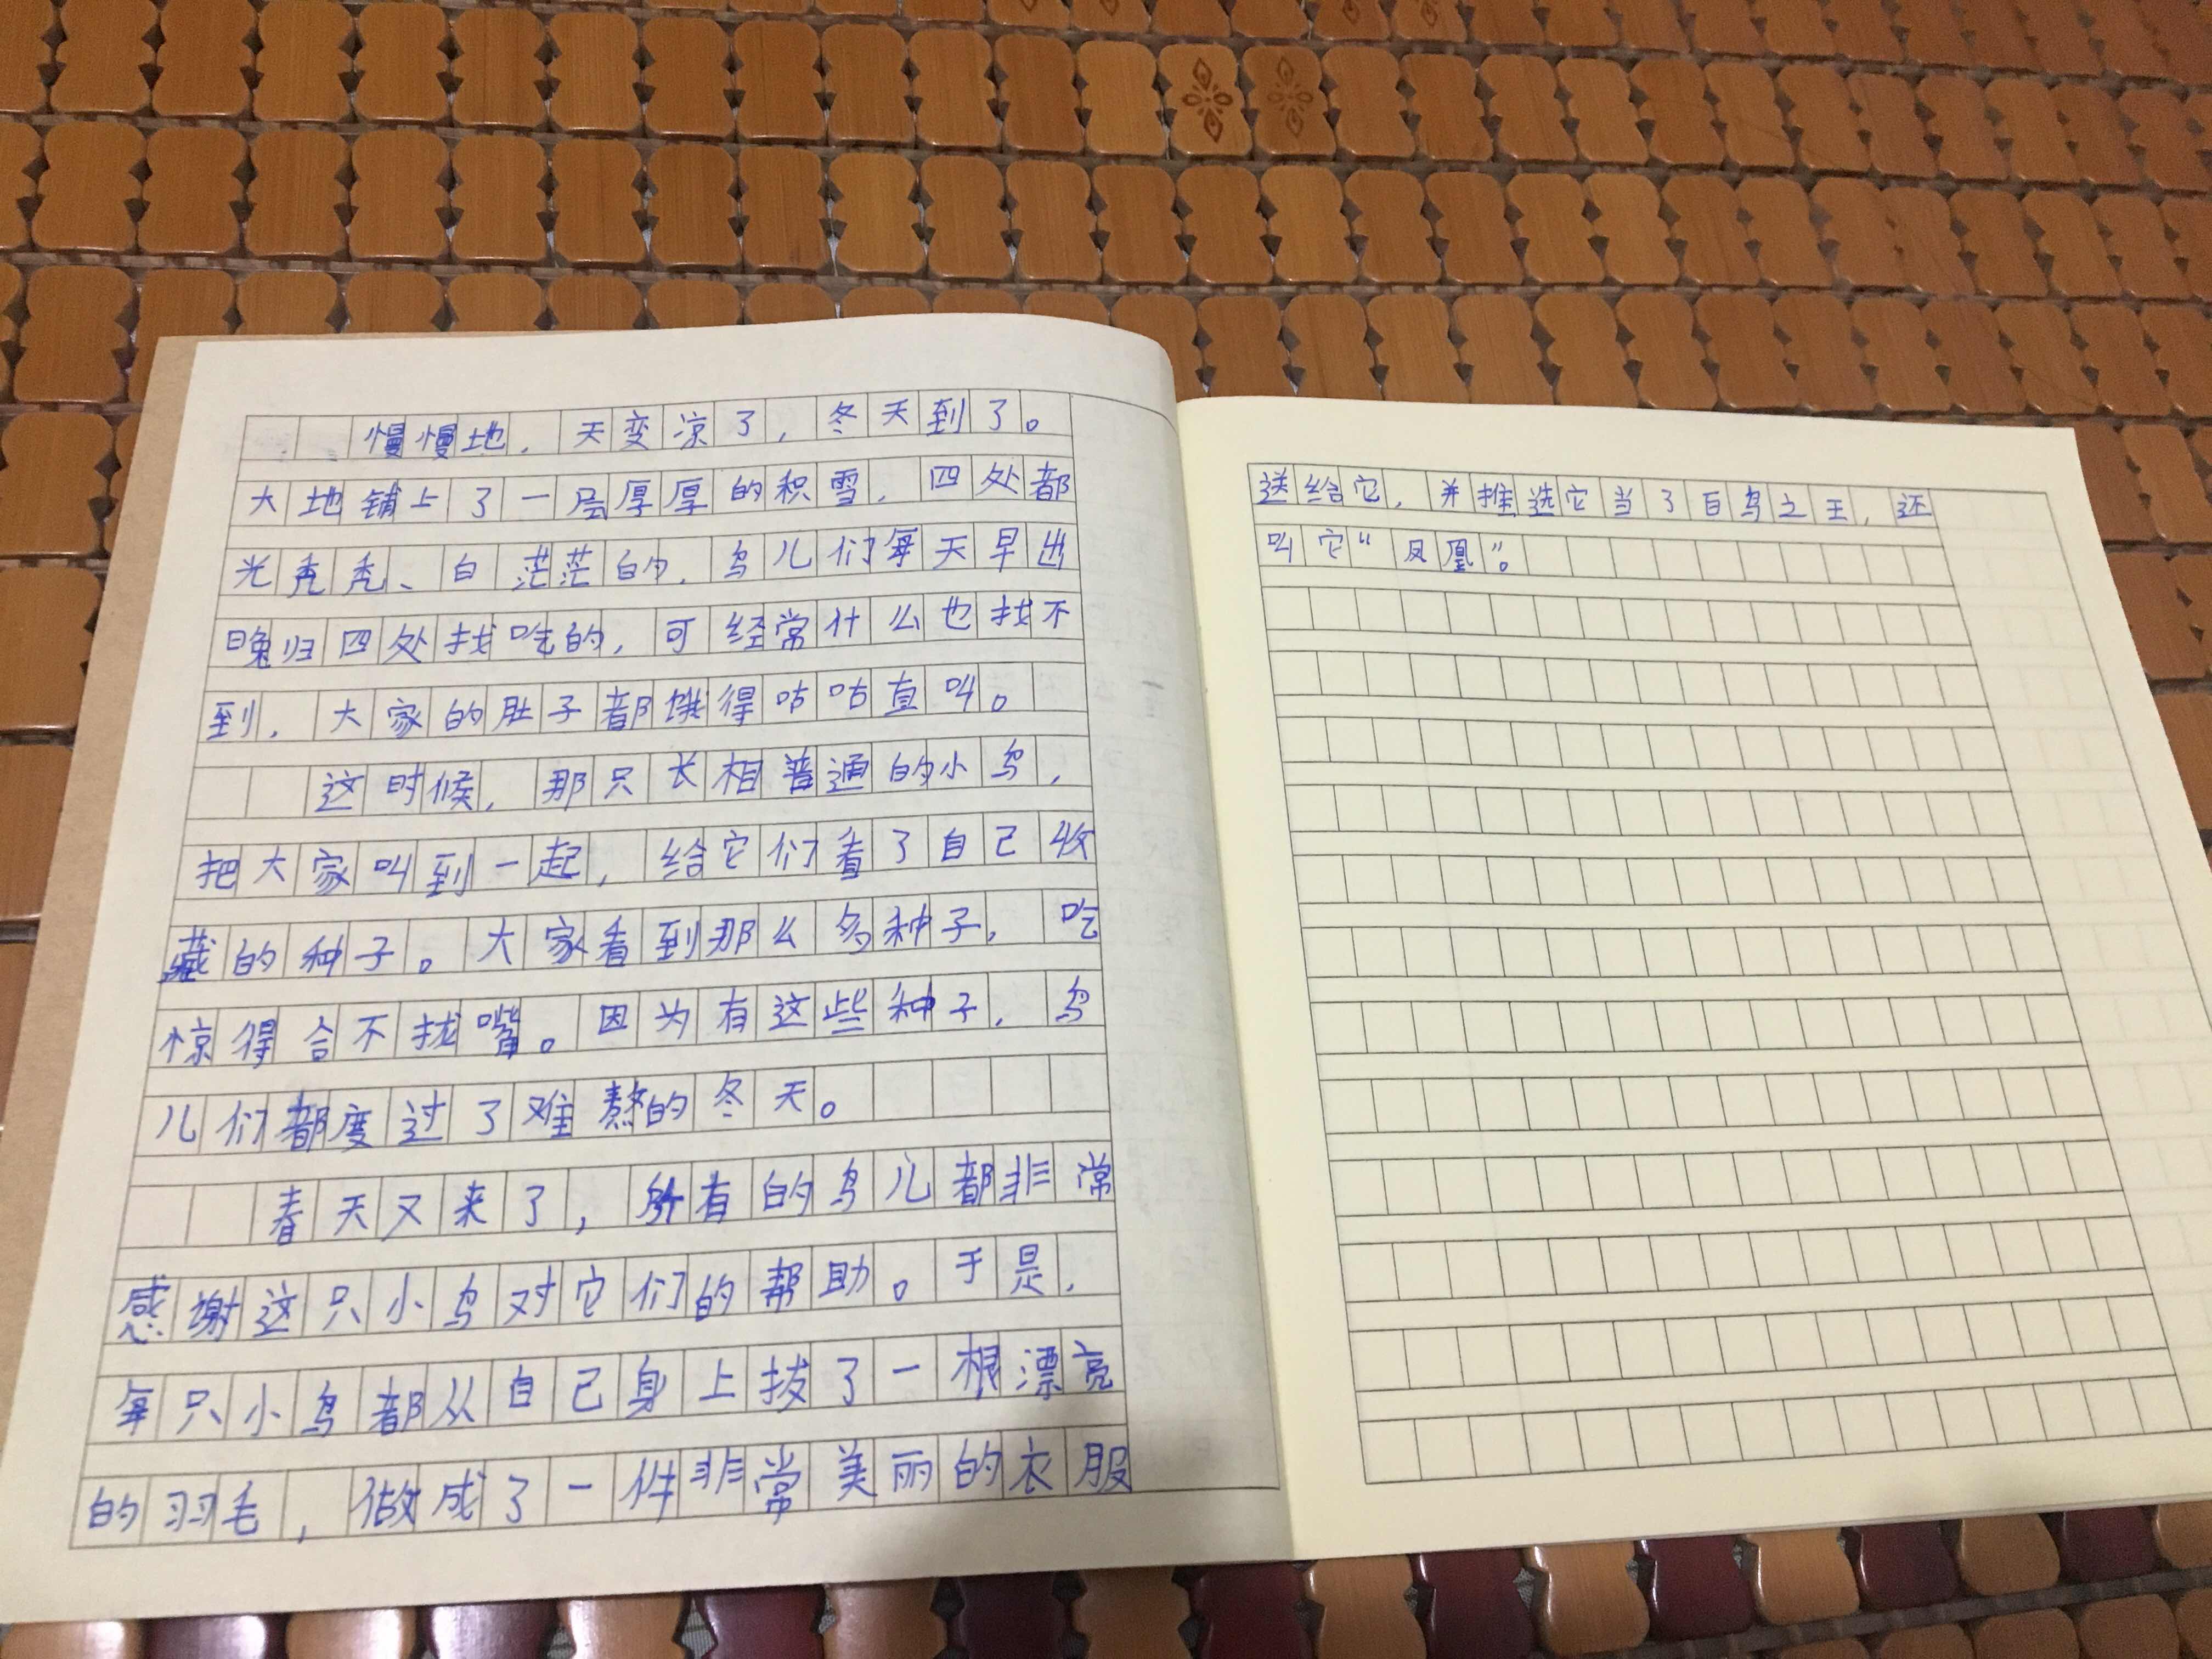 慢慢地，天变凉了，冬天到了。
大地铺上了一层厚厚的积雪，四处都
光秃秃、白茫茫的，鸟儿们每天早出
晚归四处找吃的，可经常什么也找不
到，大家的肚子都饿得咕咕直叫。
这时候，那只长相普通的小鸟，
把大家叫到一起，给它们看了自己收
藏的种子。大家看到那么多种子，吃
惊得合不拢嘴。因为有这些种子，鸟
儿们都度过了难熬的冬天。
春天又来了，所有的鸟儿都非常
感谢这只小鸟对它们的帮助。于是，
每只小鸟都从自己身上拔了一根漂亮
的羽毛，做成了一件非常美丽的衣服
送给它，并推选它当了百鸟之王，还
叫它“凤凰”。